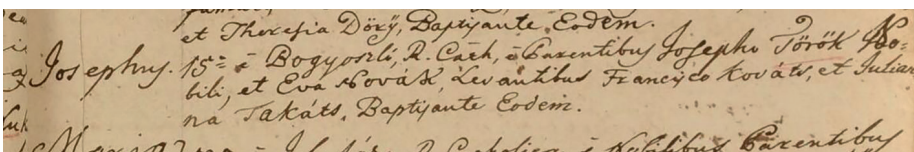 et Theresia Döry, Baptisante Eodem.
Josephus. 15= è Bogyoszli, R. Cath, è Parentibus Josepho Török No=
bili, et Eva Novák, Levantibus Francisco Kováts, et Julian
na Takáts, Baptisante Eodem.
Parentibus